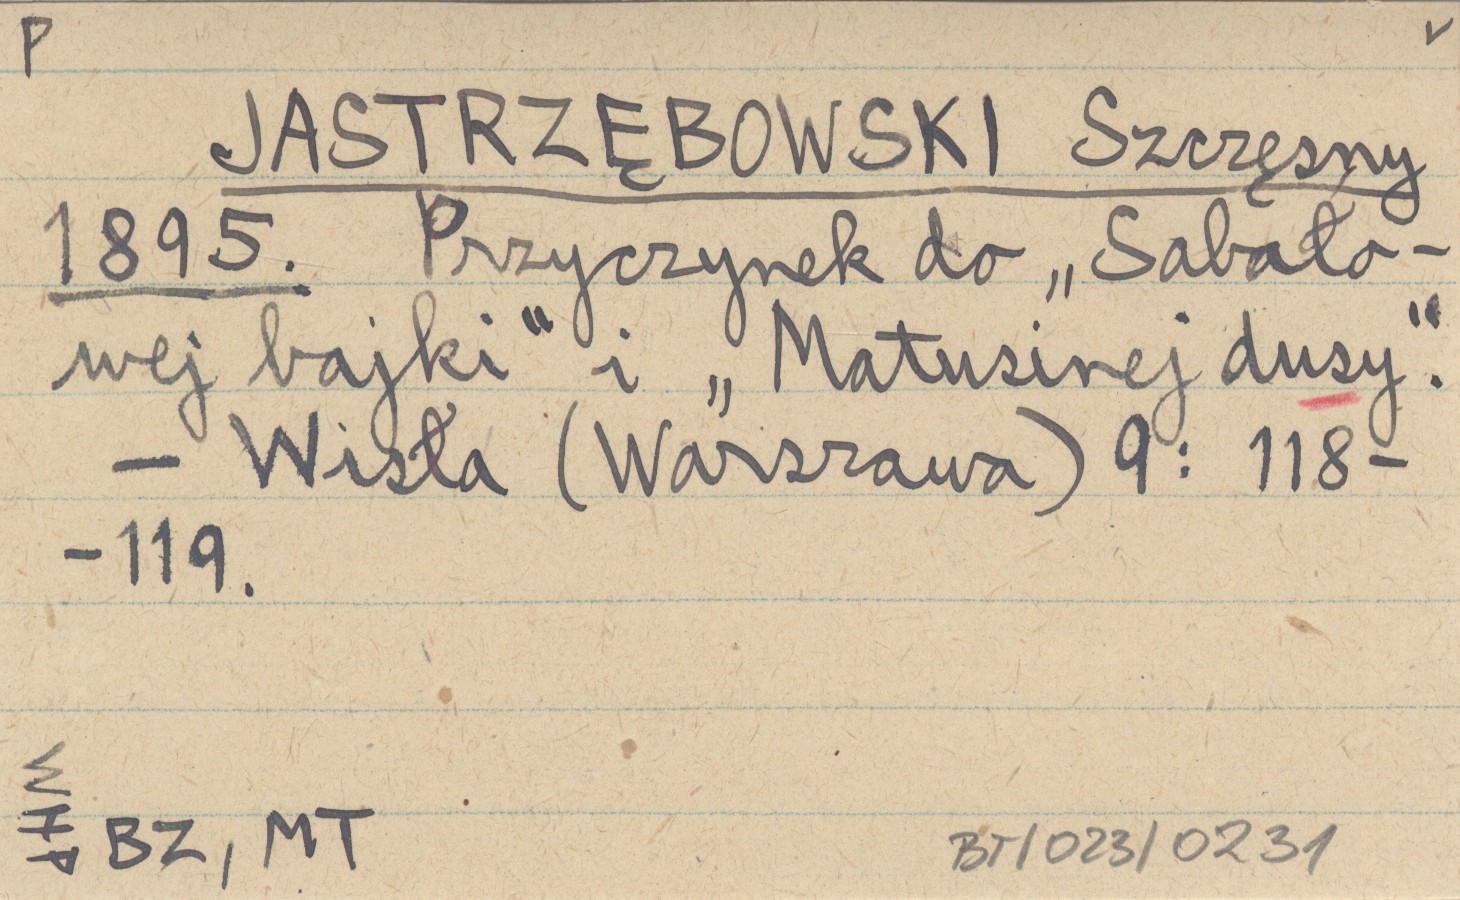 P v
JASTRZĘBOWSKI Szczęsny
1895. Przyczynek do „Sabało-
wej bajki“ i „Matusinej dusy“.
— Wisła (Warszawa) 9: 118-
-119.
BZ, MT
BT/023/0231